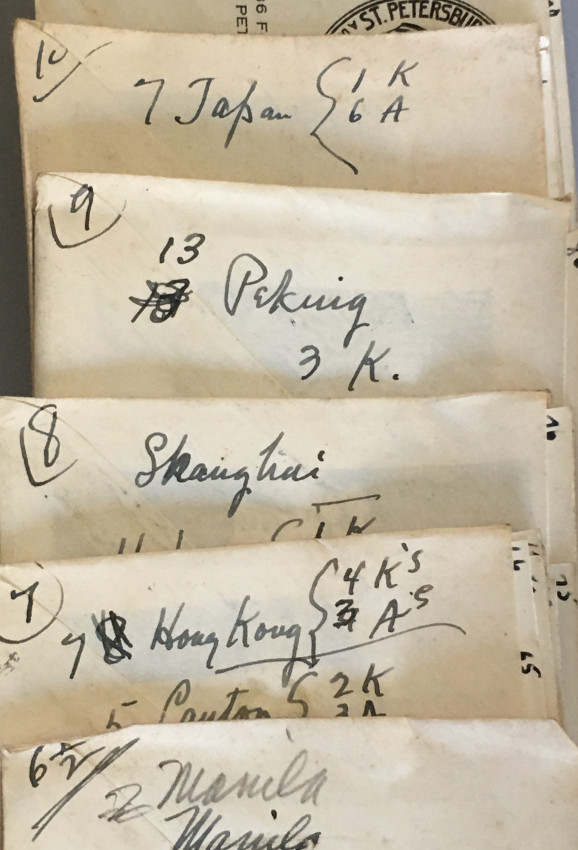 ST. PETERSBU
10
7 Japan { 1 K
6 A
9
13
Peking
3 K.
8
Shanghai
1 K
7
7 Hong Kong { 4 K's
3 A's
5 Canton { 2 K
3 A
6 1/2
2 Manila
Manila